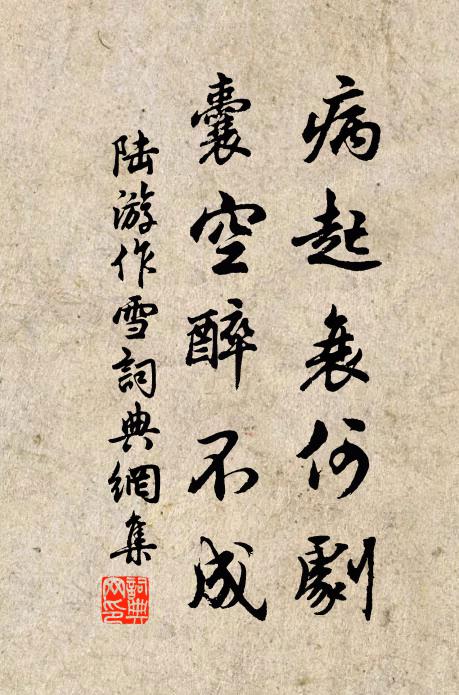 病起衰何劇
囊空醉不成
陆游作雪詞典網集
詞典網印